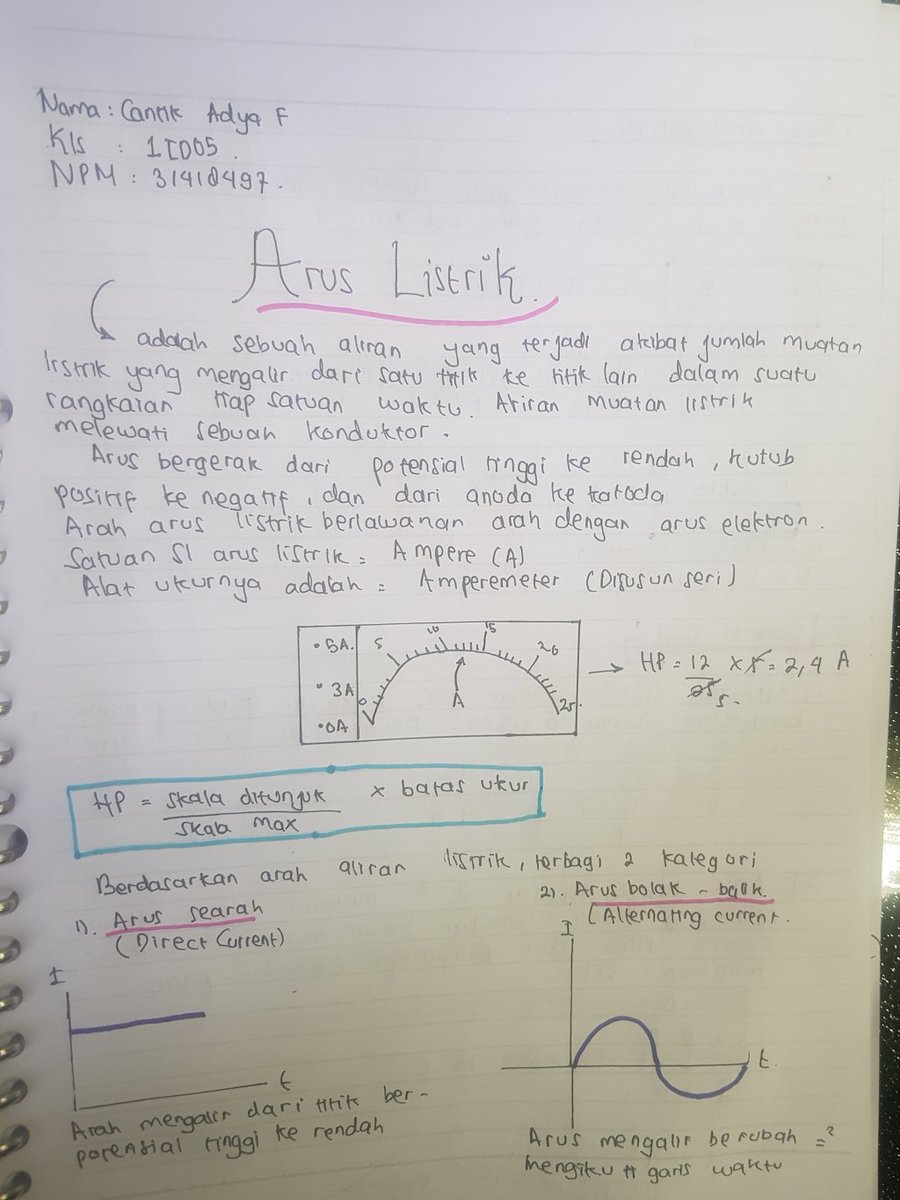 Nama : Cantik Adya F
Kls : 1ID05.
NPM : 31418497.
Arus Listrik.
adalah sebuah aliran yang terjadi akibat jumlah muatan
listrik yang mengalir dari satu titik ke titik lain dalam suatu
rangkaian tiap satuan waktu. Aliran muatan listrik
melewati sebuah konduktor.
Arus bergerak dari potensial tinggi ke rendah, kutub
positif ke negatif, dan dari anoda ke katoda
Arah arus listrik berlawanan arah dengan arus elektron.
Satuan SI arus listrik = Ampere (A)
Alat ukurnya adalah = Amperemeter (Disusun seri)
• 5A.
• 3A
• 0A
0 5 10 15 20 25
A
→ HP = 12/25 5 x 5 = 2,4 A
HP = skala ditunjuk x batas ukur
skala max
Berdasarkan arah aliran listrik, terbagi 2 kategori
1). Arus searah
(Direct Current)
I
t
Arah mengalir dari titik ber-
potensial tinggi ke rendah
2). Arus bolak - balik.
(Alternating current.
I
t.
Arus mengalir berubah =²
mengikuti garis waktu